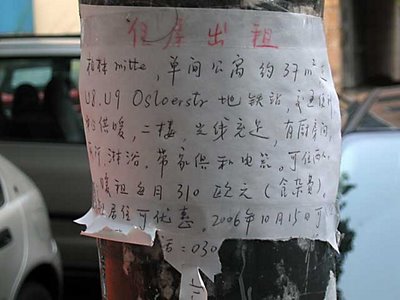 住房出租
mitte, 单间公寓约37m²
U8, U9 Osloerstr 地铁站, 交通
供暖, 二楼, 光线充足, 有厨房间,
淋浴. 带家俱和电器. 可住两人
暖租每月 310 欧元 (含杂费).
居住可优惠. 2006年10月15日可
: 030